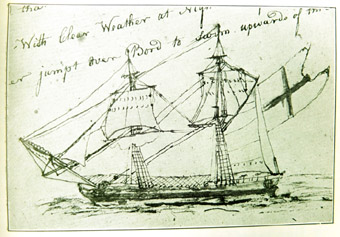 tha
With Clear Weather at Nig
er jumpt over Bord to Swim upwards of